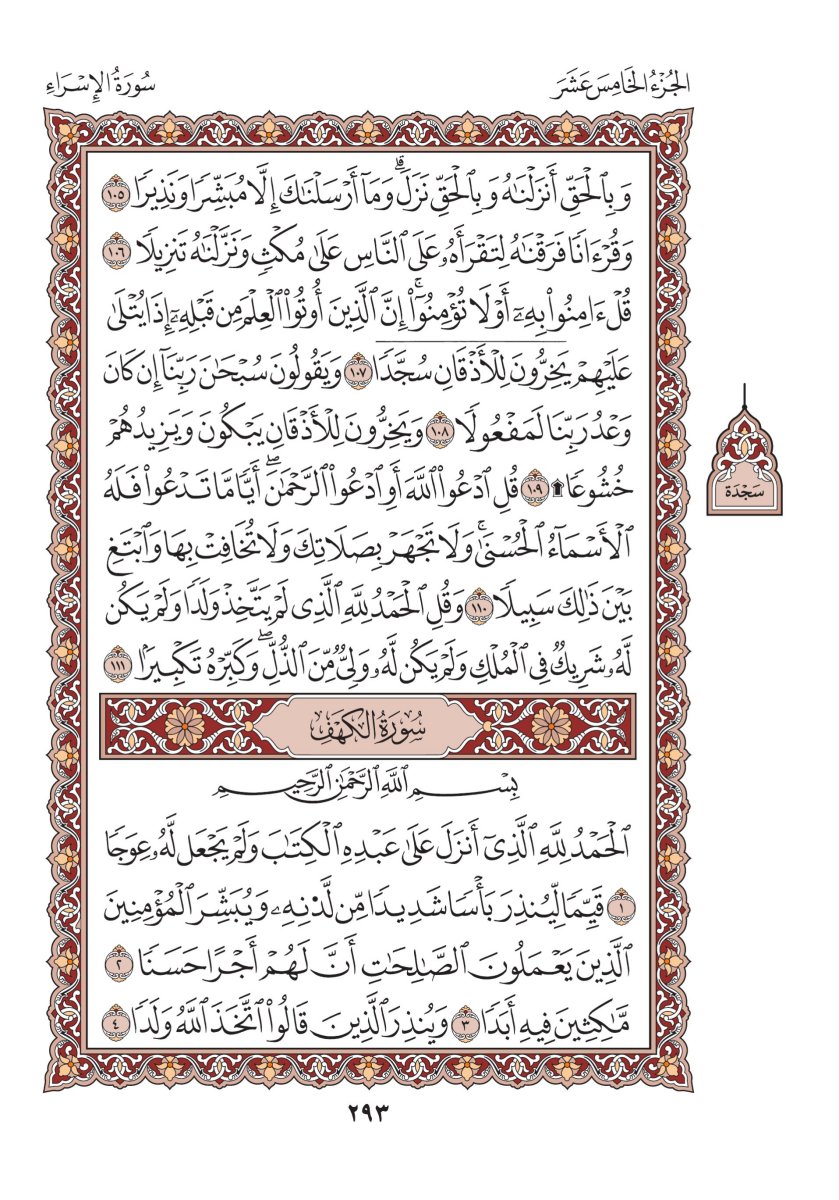 الجُزْءُ الخَامِسَ عَشَرَ
سُورَةُ الإِسْرَاءِ
وَبِٱلْحَقِّ أَنزَلْنَٰهُ وَبِٱلْحَقِّ نَزَلَۗ وَمَآ أَرْسَلْنَٰكَ إِلَّا مُبَشِّرًا وَنَذِيرًا ١٠٥
وَقُرْءَانًا فَرَقْنَٰهُ لِتَقْرَأَهُۥ عَلَى ٱلنَّاسِ عَلَىٰ مُكْثٍ وَنَزَّلْنَٰهُ تَنزِيلًا ١٠٦
قُلْ ءَامِنُوا۟ بِهِۦٓ أَوْ لَا تُؤْمِنُوٓا۟ۚ إِنَّ ٱلَّذِينَ أُوتُوا۟ ٱلْعِلْمَ مِن قَبْلِهِۦٓ إِذَا يُتْلَىٰ
عَلَيْهِمْ يَخِرُّونَ لِلْأَذْقَانِ سُجَّدًا ١٠٧ وَيَقُولُونَ سُبْحَٰنَ رَبِّنَآ إِن كَانَ
وَعْدُ رَبِّنَا لَمَفْعُولًا ١٠٨ وَيَخِرُّونَ لِلْأَذْقَانِ يَبْكُونَ وَيَزِيدُهُمْ
خُشُوعًا ۩ ١٠٩ قُلِ ٱدْعُوا۟ ٱللَّهَ أَوِ ٱدْعُوا۟ ٱلرَّحْمَٰنَۖ أَيًّا مَّا تَدْعُوا۟ فَلَهُ
ٱلْأَسْمَآءُ ٱلْحُسْنَىٰۚ وَلَا تَجْهَرْ بِصَلَاتِكَ وَلَا تُخَافِتْ بِهَا وَٱبْتَغِ
بَيْنَ ذَٰلِكَ سَبِيلًا ١١٠ وَقُلِ ٱلْحَمْدُ لِلَّهِ ٱلَّذِى لَمْ يَتَّخِذْ وَلَدًا وَلَمْ يَكُن
لَّهُۥ شَرِيكٌ فِى ٱلْمُلْكِ وَلَمْ يَكُن لَّهُۥ وَلِىٌّ مِّنَ ٱلذُّلِّۖ وَكَبِّرْهُ تَكْبِيرًۢا ١١١
سَجْدَة
سُورَةُ الكَهْفِ
بِسْمِ ٱللَّهِ ٱلرَّحْمَٰنِ ٱلرَّحِيمِ
ٱلْحَمْدُ لِلَّهِ ٱلَّذِىٓ أَنزَلَ عَلَىٰ عَبْدِهِ ٱلْكِتَٰبَ وَلَمْ يَجْعَل لَّهُۥ عِوَجَا
١ قَيِّمًا لِّيُنذِرَ بَأْسًا شَدِيدًا مِّن لَّدُنْهُ وَيُبَشِّرَ ٱلْمُؤْمِنِينَ
ٱلَّذِينَ يَعْمَلُونَ ٱلصَّٰلِحَٰتِ أَنَّ لَهُمْ أَجْرًا حَسَنًا ٢
مَّٰكِثِينَ فِيهِ أَبَدًا ٣ وَيُنذِرَ ٱلَّذِينَ قَالُوا۟ ٱتَّخَذَ ٱللَّهُ وَلَدًا ٤
٢٩٣